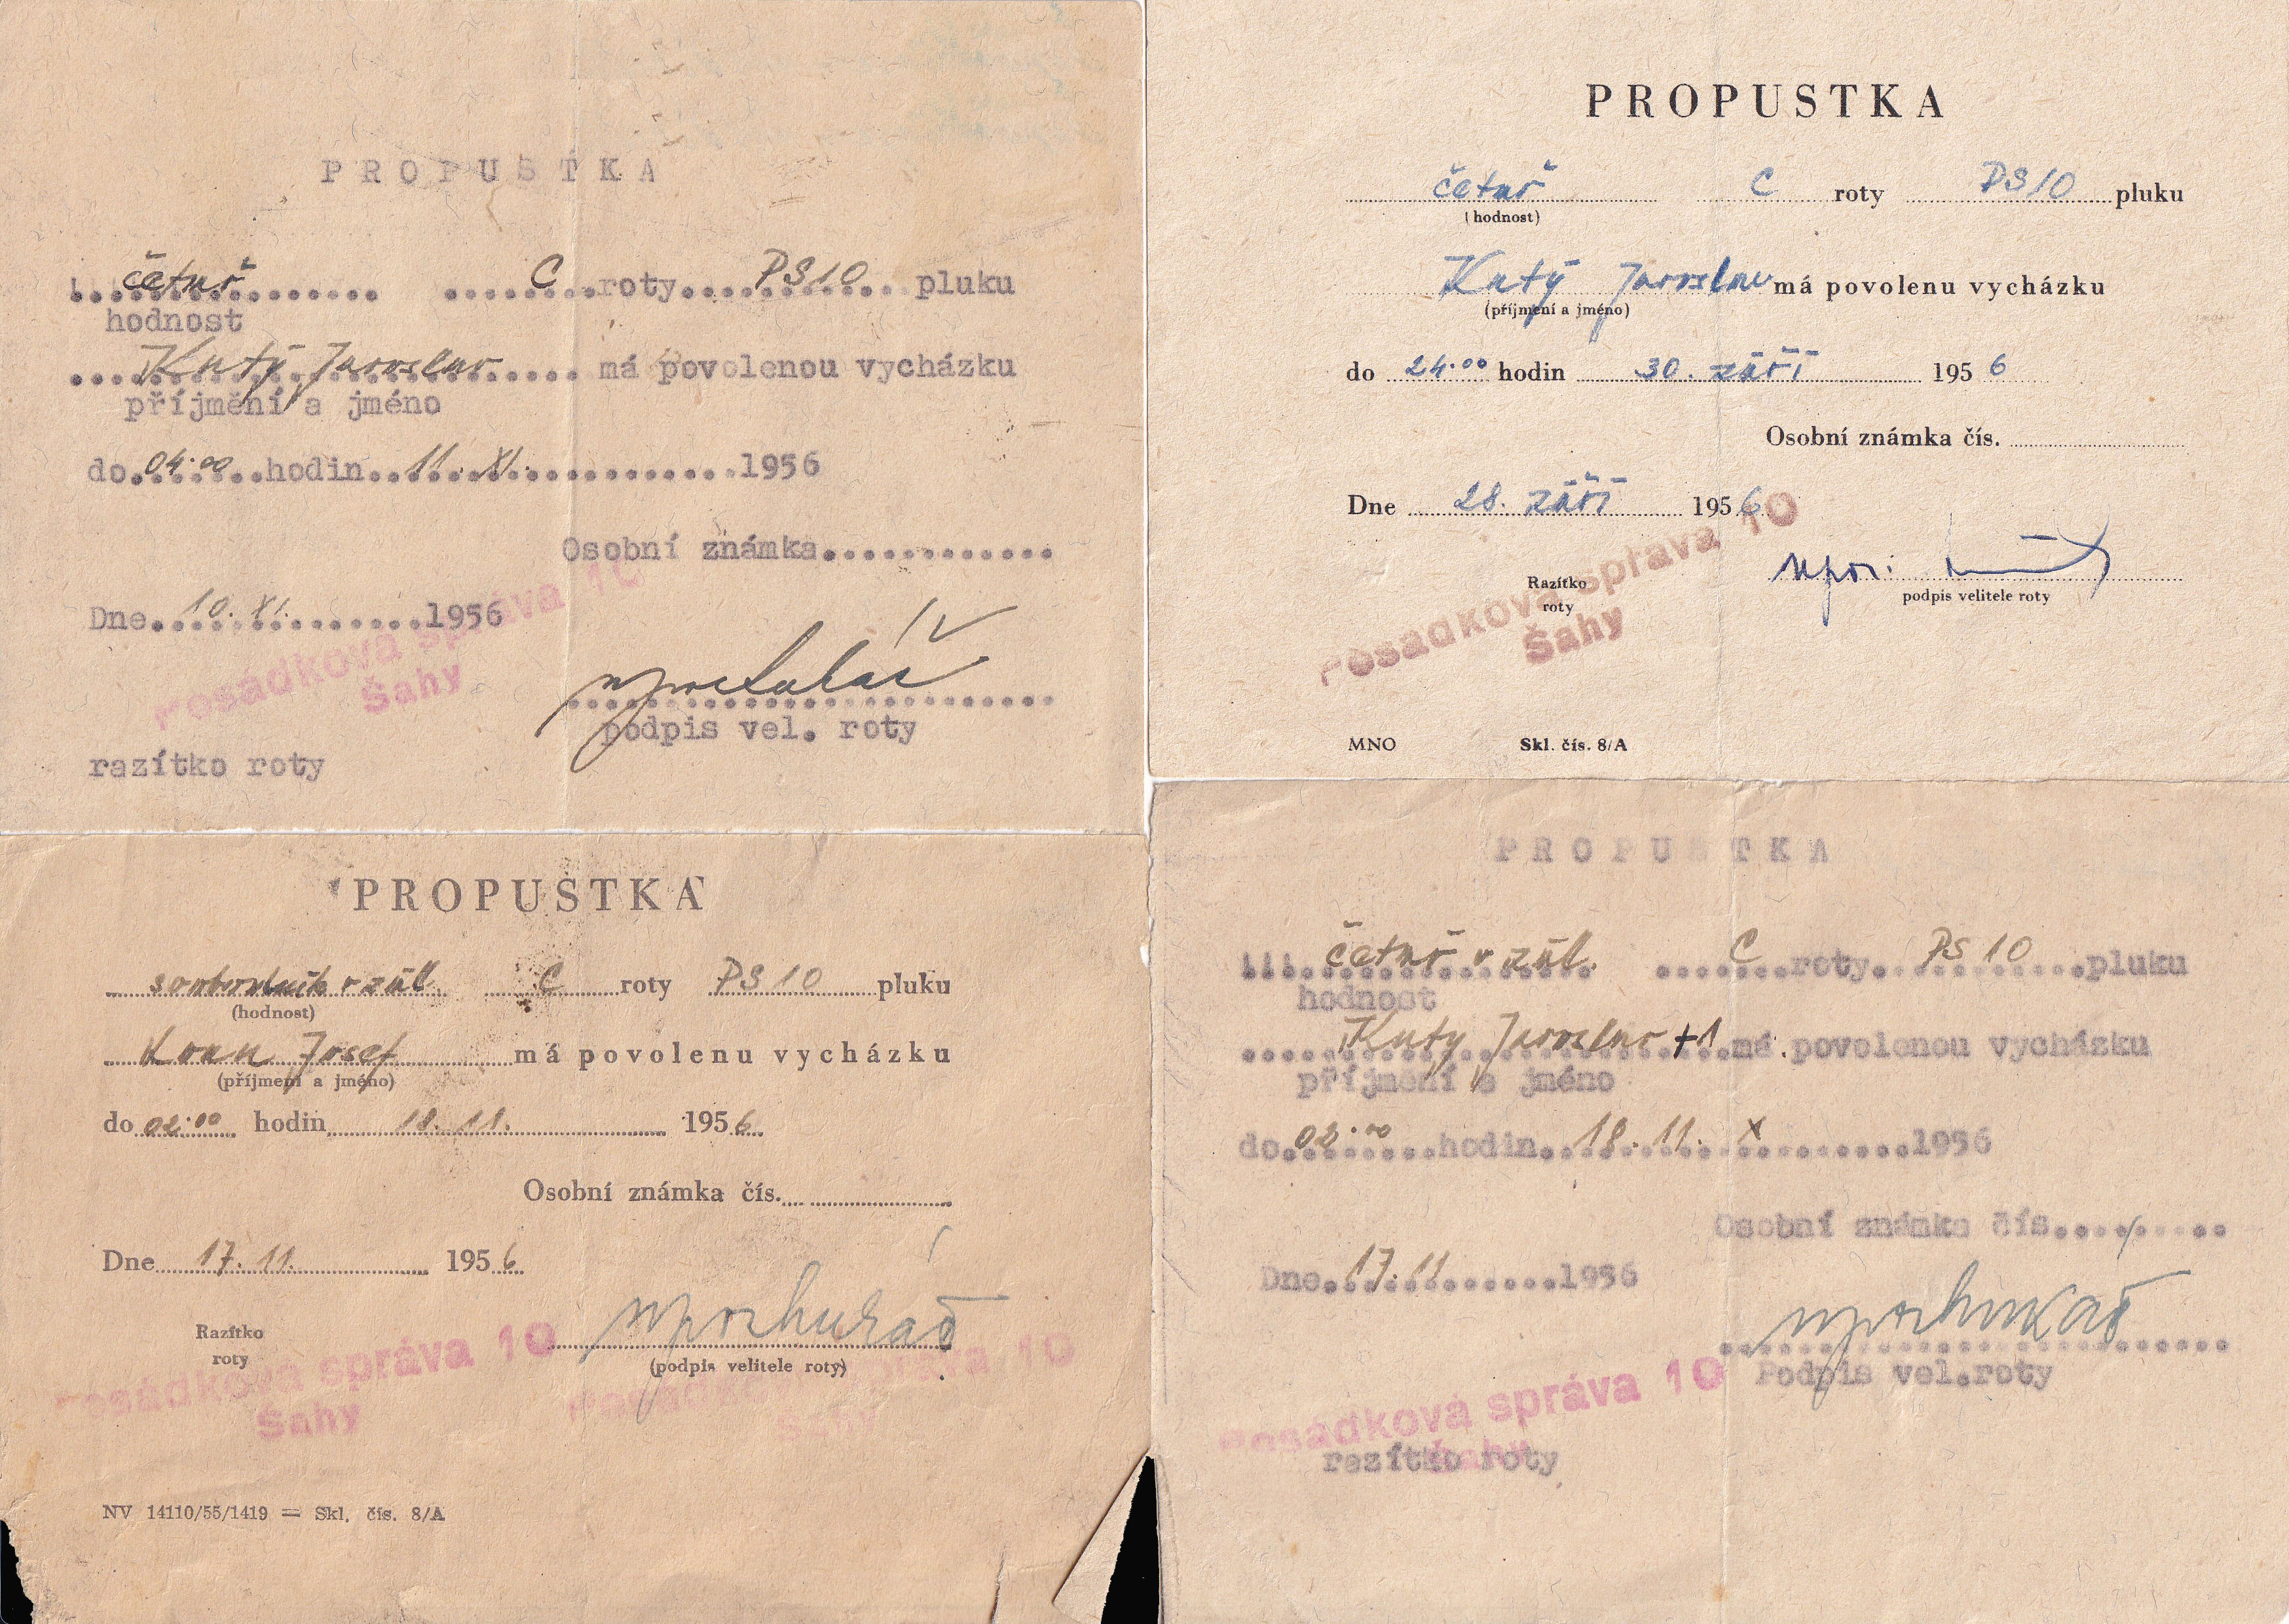 PROPUSTKA
četař C roty PS10 pluku
hodnost
Kutý Jaroslav má povolenou vycházku
příjmení a jméno
do 04.00 hodin 11. XI. 1956
Osobní známka
Dne 10. XI. 1956
Posádková správa 10
Šahy
podpis vel. roty
razítko roty
PROPUSTKA
četař C roty PS10 pluku
(hodnost)
Kutý Jaroslav má povolenu vycházku
(příjmení a jméno)
do 24.00 hodin 30. září 1956
Osobní známka čís.
Dne 28. září 1956
Posádková správa 10
Šahy
Razítko
roty
npor.
podpis velitele roty
MNO Skl. čís. 8/A
PROPUSTKA
v zál. C roty PS10 pluku
(hodnost)
Josef má povolenu vycházku
(příjmení a jméno)
do 02.00 hodin 18. 11. 1956
Osobní známka čís.
Dne 17. 11. 1956
Razítko
roty
(podpis velitele roty)
Posádková správa 10
Šahy
Posádková správa 10
Šahy
NV 14110/55/1419 = Skl. čís. 8/A
PROPUSTKA
četař v zál. C roty PS 10 pluku
hodnost
Kutý Jaroslav +1 má povolenou vycházku
příjmení a jméno
do 02.00 hodin 18. 11. x 1956
Osobní známka čís.
Dne 17. 11 1956
Podpis vel.roty
Posádková správa 10
Šahy
razítko roty